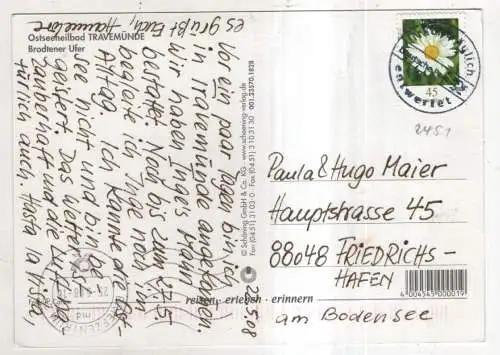 Ostseeheilbad TRAVEMÜNDE
Brodtener Ufer
Vor ein paar Tagen bin ich
in Travemünde angekommen.
Wir haben Inge's Mann
bestattet. Noch bis zum 27.5
begleite ich Inge noch im
Alltag. Ich kannte die Ost-
see nicht und bin be-
geistert. Das Wetter ist
zauberhaft und die Luft na-
türlich auch. Hasta la Vista,
es grüßt Euch, Hannelore
22.5.08
© Schöning GmbH & Co. KG · www.schoening-verlag.de
Fax (04 51) 3 10 31 30 · 001.23570.1828
reisen · erleben · erinnern
Deutschland
45
entwertet
2451
Paula & Hugo Maier
Hauptstrasse 45
88048 FRIEDRICHS-
HAFEN
am Bodensee
4 004545 000019